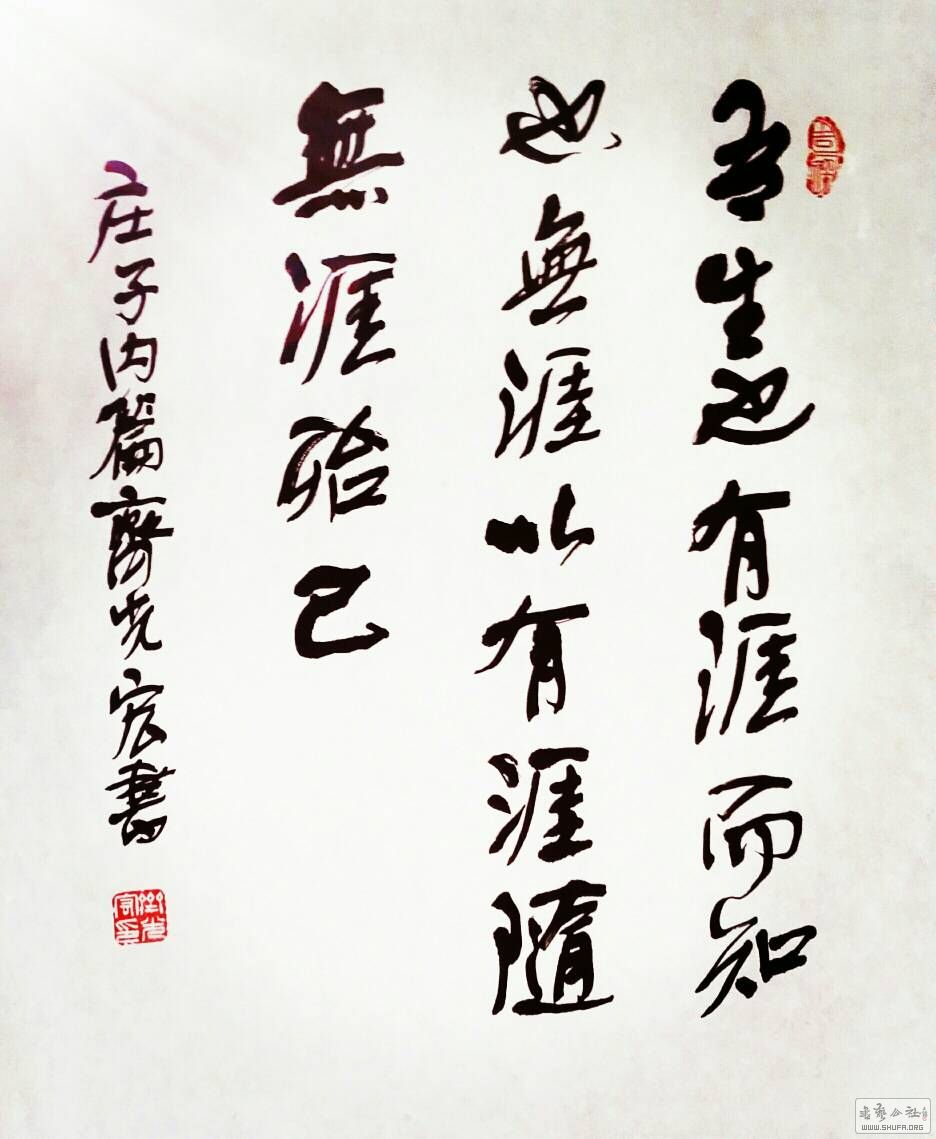 吾生也有涯而知
也無涯以有涯隨
無涯殆已
庄子内篇齊光宏書
书藝公社
WWW.SHUFA.ORG